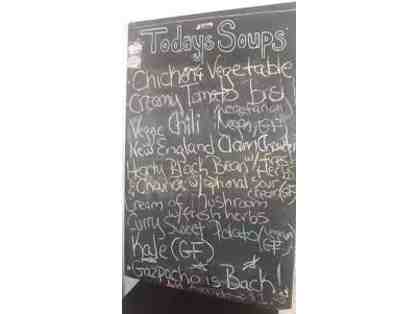 Todays Soups
Chicken & Vegetable
Creamy Tomato
(vegetarian)
Veggie Chili Vegan (GF)
New England Clam Chowder
Harty Black Bean w/ fresh
Herbs
& Chourico w/ optional Sour
cream (GF)
Cream of Mushroom
w/ fresh herbs
Curry Sweet Potato (vegan)
(GF)
Kale (GF)
Gazpacho is Back!